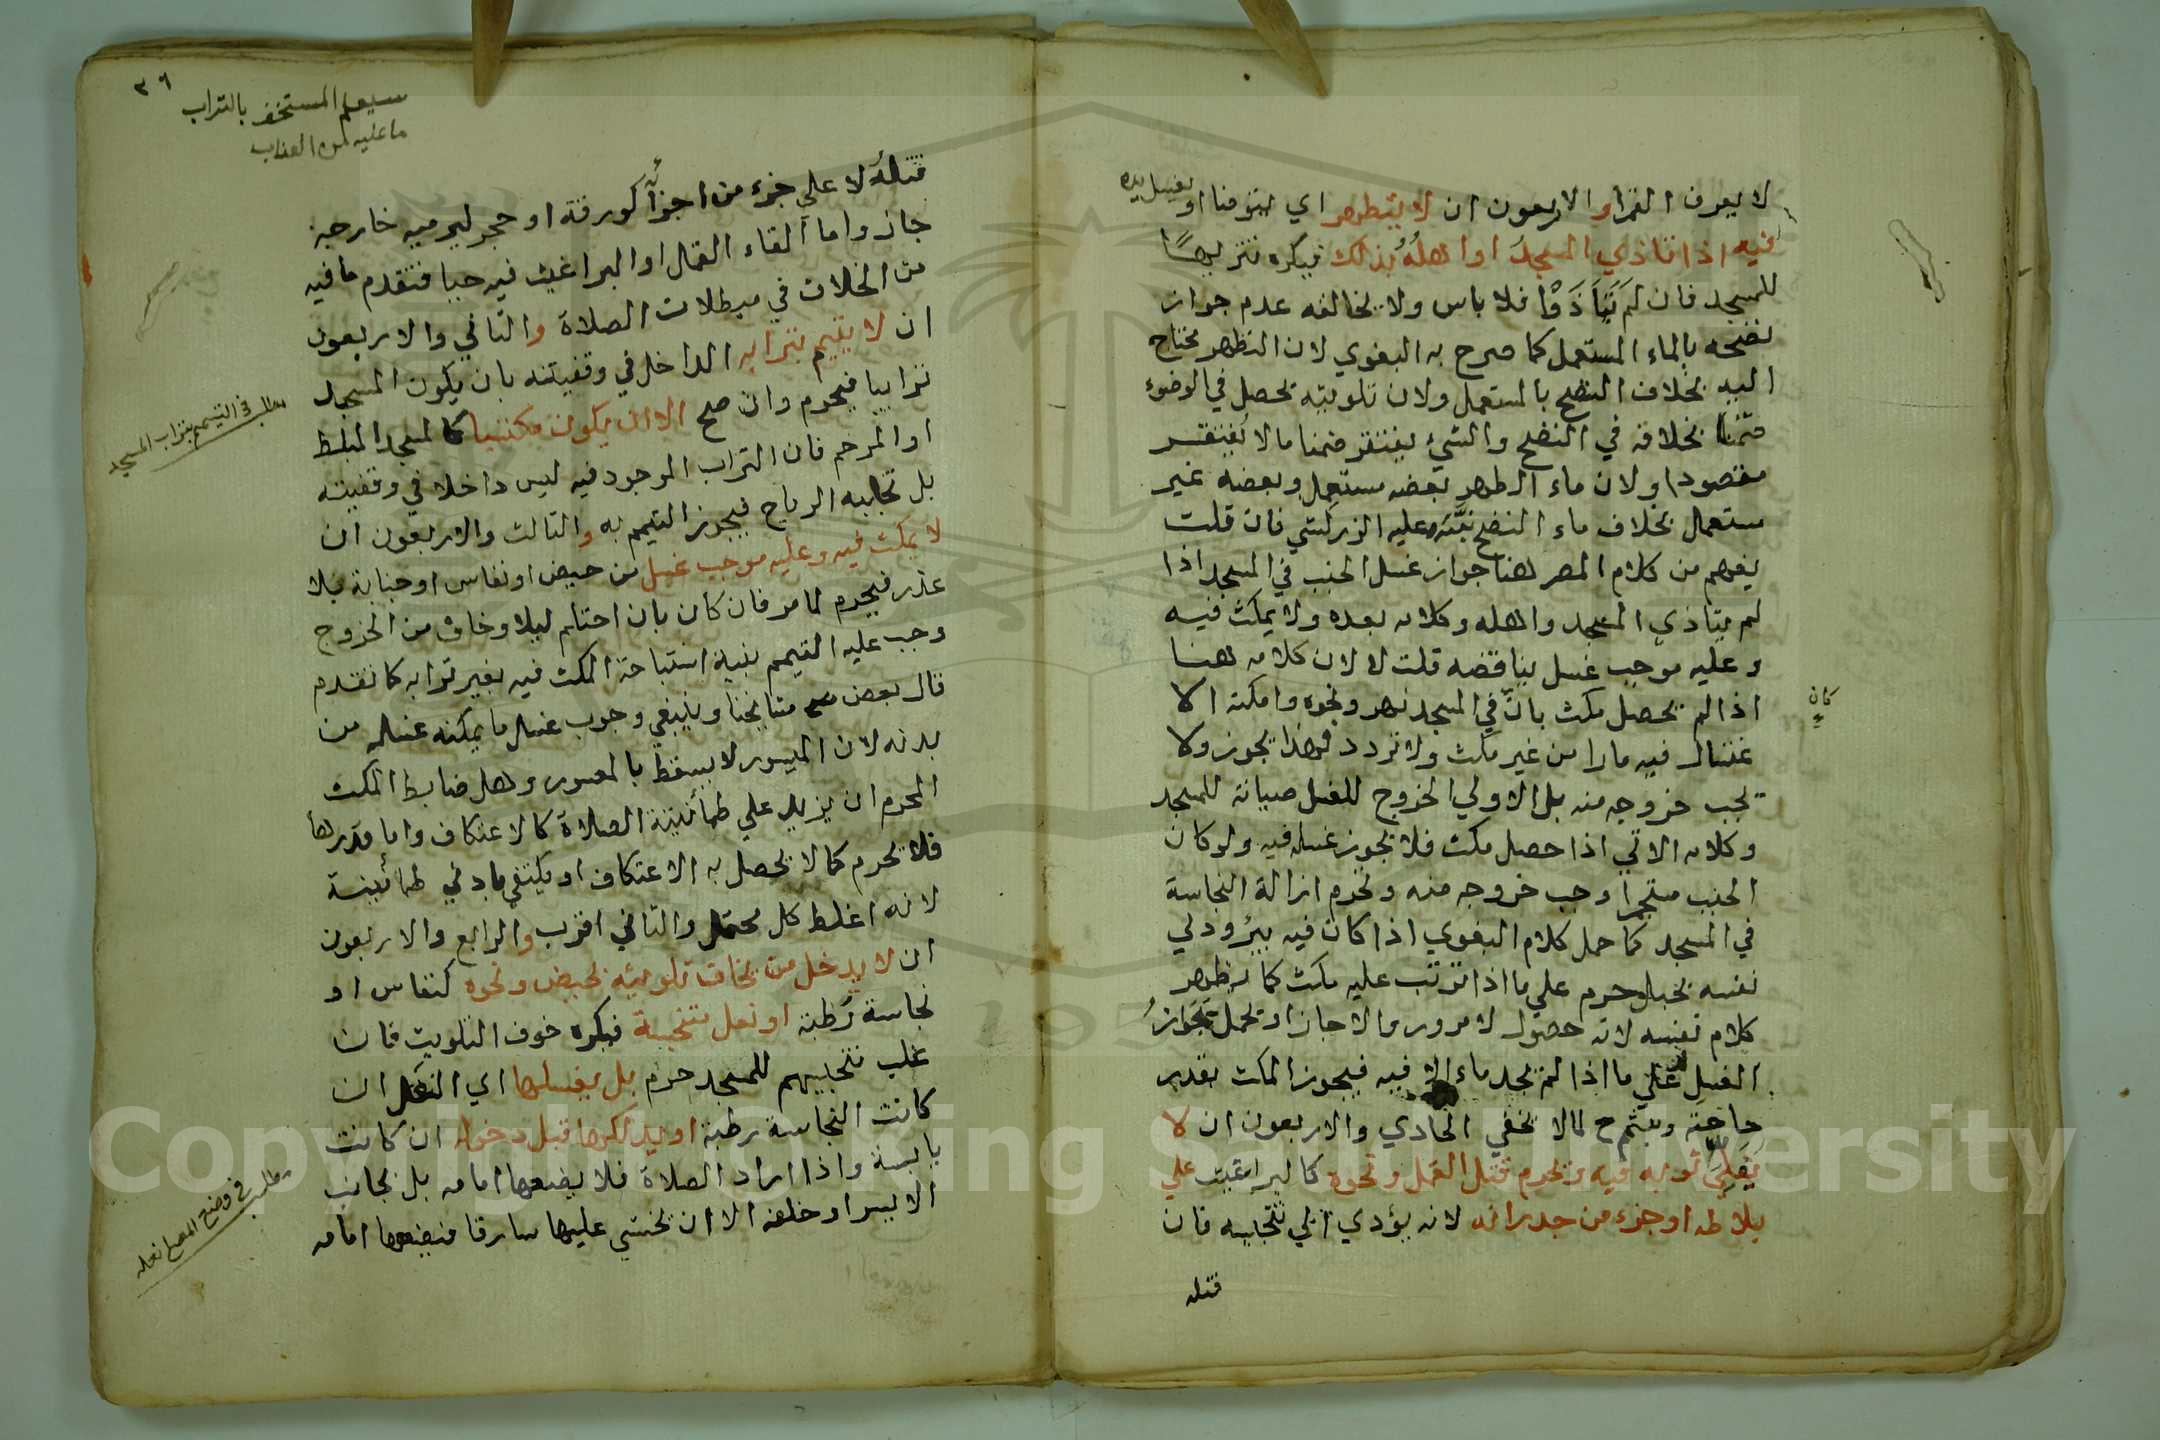 لا يعرف القرا والاربعون ان لا يتطهر اي يتوضا او يغسل يده
فيه اذا تاذي المسجد او اهله بذلك فيكره تنزيها
للمسجد فان لم يتاذوا فلا باس ولا يخالفه عدم جواز
نضحه بالماء المستعمل كما صرح به البغوي لان التطهر يحتاج
اليه بخلاف النضح بالمستعمل ولان تلويثه يحصل في الوضوء
ضمنا بخلافه في النضح والشيء يغتفر ضمنا مالا يغتفر
مقصودا ولان ماء الطهر بعضه مستعمل وبعضه غير
مستعمل بخلاف ماء النضح نبه عليه الزركشي فان قلت
يفهم من كلام المص هنا جواز غسل الجنب في المسجد اذا
لم يتاذي المسجد واهله وكلامه بعده ولا يمكث فيه
وعليه موجب غسل يناقضه قلت لا لان كلامه هنا
اذا لم يحصل مكث بان في المسجد نهر ونحوه وامكنه الا
كان
غتسال فيه مارا من غير مكث ولا تردد فهذا يجوز ولا
يجب خروجه منه بل الاولي الخروج للغسل صيانة للمسجد
وكلامه الاتي اذا حصل مكث فلا يجوز غسله فيه ولو كان
الجنب مستجمرا وجب خروجه منه وتحرم ازالة النجاسة
في المسجد كما حمل كلام البغوي اذا كان فيه بير ودلي
نفسه بحبل وحرم علي ما اذا ترتب عليه مكث كما يظهر
كلام نفسه لانه حصول لا مرور والا جاز او يحمل تجوز
الغسل علي ما اذا لم يجد ماء الا فيه فيجوز المكث بقدر
حاجته ويتيمم ح لما لا يخفي الحادي والاربعون ان لا
يفلي ثوبه فيه ويحرم قتل القمل ونحوه كالبراغيث علي
بلاطه او جزء من جدرانه لانه يؤدي الي تنجيسه فان
قتله
٣٦
سيعلم المستخف بالتراب
ما عليه من العذاب
قتله لا علي جزء من اجزائه كورقة او حجر ليرميه خارجه
جاز واما القاء القمل او البراغيث فيه حيا فتقدم ما فيه
من الخلاف في مبطلات الصلاة والثاني والاربعون
ان لا يتيمم بترابه الداخل في وقفيته بان يكون المسجد
مطلب في التيمم بتراب المسجد
ترابيا فيحرم وان صح الا ان يكون مكتسبا كالمسجد المبلط
او المرخم فان التراب الموجود فيه ليس داخلا في وقفيته
بل تجلبه الرياح فيجوز التيمم به والثالث والاربعون ان
لا يمكث فيه وعليه موجب غسل من حيض او نفاس او جنابة بلا
عذر فيحرم لما مر فان كان بان احتلم ليلا وخاف من الخروج
وجب عليه التيمم بنية استباحة المكث فيه بغير ترابه كما تقدم
قال بعض مشايخنا وينبغي وجوب غسل ما يمكنه غسله من
بدنه لان الميسور لا يسقط بالمعسور وهل ضابط المكث
المحرم ان يزيد علي طمأنينة الصلاة كالاعتكاف واما قدرها
فلا تحرم كما لا يحصل به الاعتكاف او يكتفي بادني طمأنينة
لانه اغلظ كل محتمل والثاني اقرب والرابع والاربعون
ان لا يدخل من يخاف تلويثه بحيض ونحوه كنفاس او
نجاسة رطبة او نعل متنجسة فيكره خوف التلويث فان
غلب تنجيسهم للمسجد حرم بل يغسلها اي النعل ان
كانت النجاسة رطبة او يدلكها قبل دخوله ان كانت
يابسة واذا اراد الصلاة فلا يضعها امامه بل بجانب
مطلب في وضع المصلي نعله
الايسر او خلفه الا ان يخشي عليها سارقا فيضعها امامه